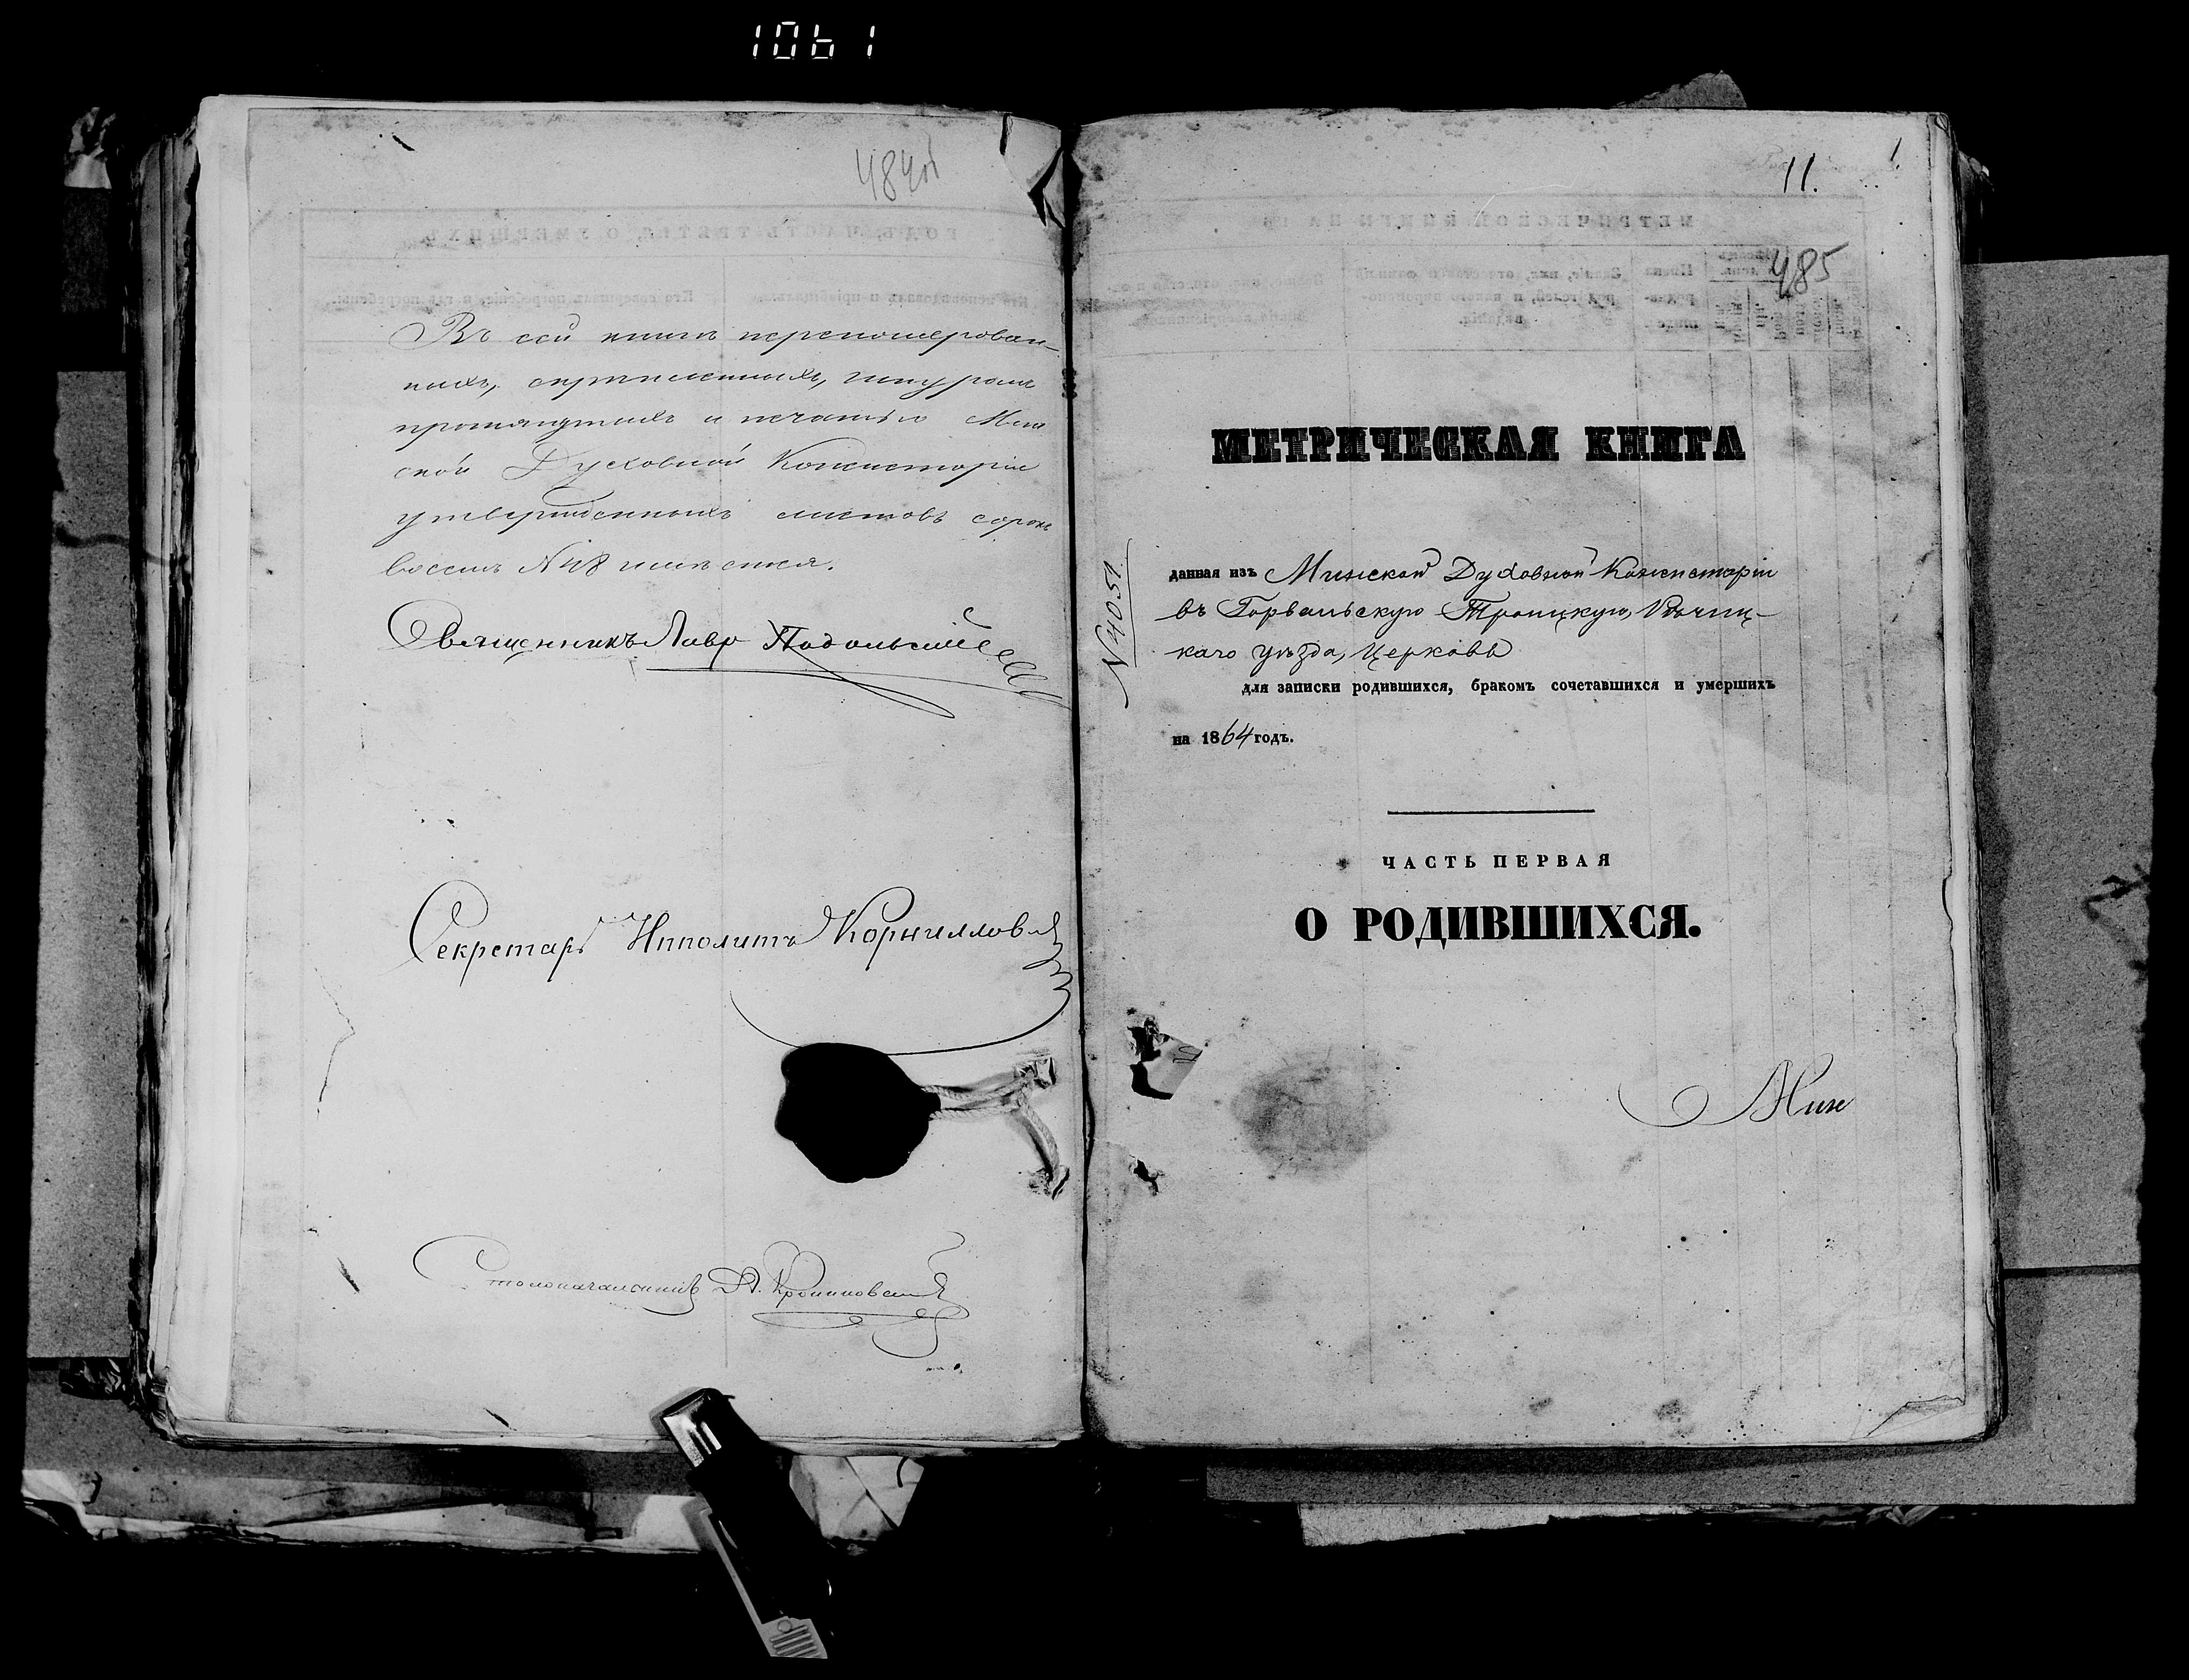 1061
484об
Въ сей книгѣ переномерован-
ныхъ, скрѣпленныхъ, шнуромъ
протянутыхъ и печатью Мин
ской Духовной Консисторіи
утвержденныхъ листовъ сорокъ
восемь №48 имѣется.
Священникъ Лавр Подольскій
Секретарь Ипполитъ Корнилловъ
Столоначальникъ
1.
11.
485
МЕТРИЧЕСКАЯ КНИГА
№4051.
данная изъ Минской Духовной Консисторіи
въ Горвальскую Троицкую, Рѣчиц-
каго уѣзда, Церковь
для записки родившихся, бракомъ сочетавшихся и умершихъ
на 1864 годъ.
ЧАСТЬ ПЕРВАЯ
О РОДИВШИХСЯ.
Мин